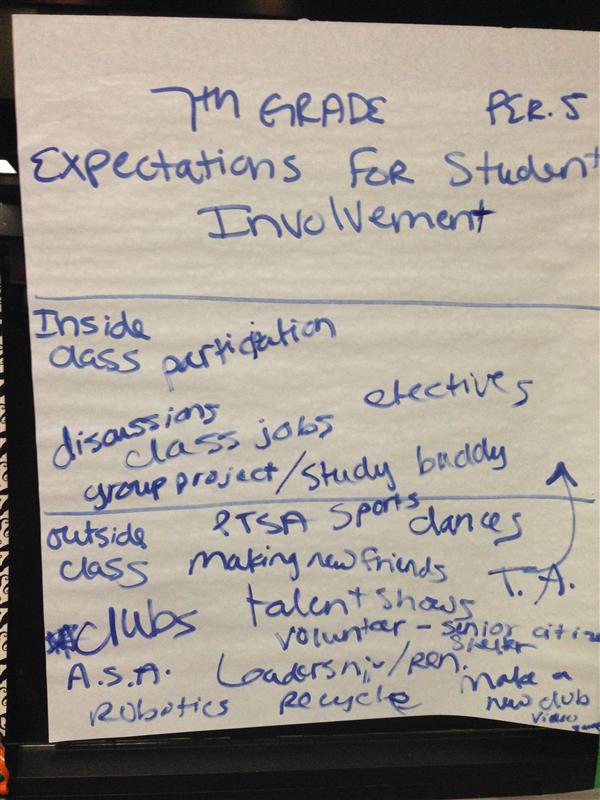 7th GRADE PER. 5
Expectations For Student
Involvement
Inside
class participation
discussions electives
class jobs
group project/study buddy
outside PTSA Sports dances
class making new friends T.A.
talent shows
*clubs
volunteer - senior citize
shelter
A.S.A. Leadership/Ren. make a
new club
Robotics Recycle video